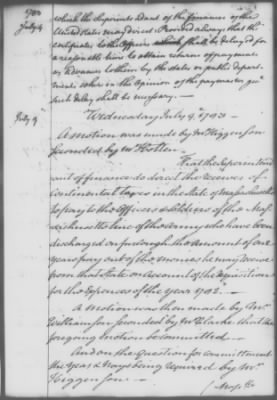 1783
July 4
which the Superintendant of the finances of the
United States may direct. Provided always that the
certificates to the Officers shall be delayed for
a reasonable time to obtain returns of payments
or advances to them by the states or public depart-
ments where in the Opinion of the paymaster Genl
such delay shall be necessary. —
July 9
Wednesday July 9th 1783
A motion was made by Mr Higginson
seconded by Mr Holten.
That the Superintend
ant of finance do direct the receiver of
Continental taxes in the State of Massachusetts
to pay to the Officers & Soldiers of the Mas
sachusetts line of the army who have been
discharged on furlough the amount of one
years pay out of the monies he may receive
from that State on Account of the requisition
for the Expences of the year 1782. —
A motion was then made by Mr
Williamson seconded by Mr Clarke that the
foregoing motion be committed. —
And on the question for commitment
the Yeas & Nays being required by Mr
Higginson. —